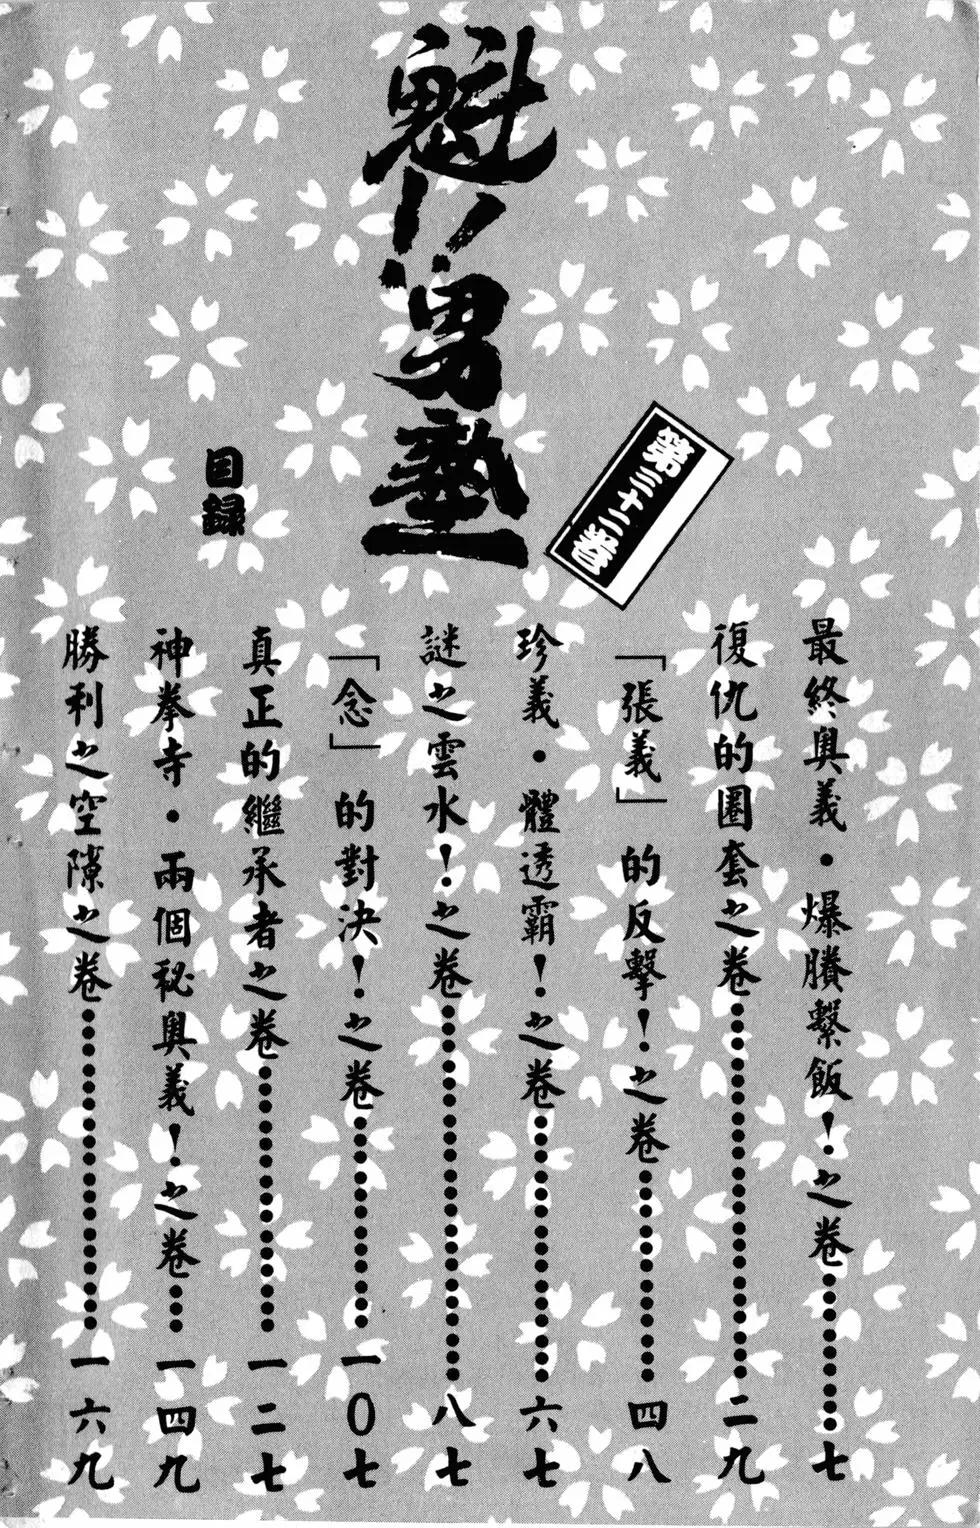 魁!!男塾
第三十二卷
目錄
最終奧義・爆臏繫飯!之卷………七
復仇的圈套之卷………二九
「張義」的反擊!之卷………四八
珍義・體透霸!之卷………六七
謎之雲水!之卷………八七
「念」的對決!之卷………一0七
真正的繼承者之卷………一二七
神拳寺・兩個秘奧義!之卷…一四九
勝利之空隙之卷………一六九